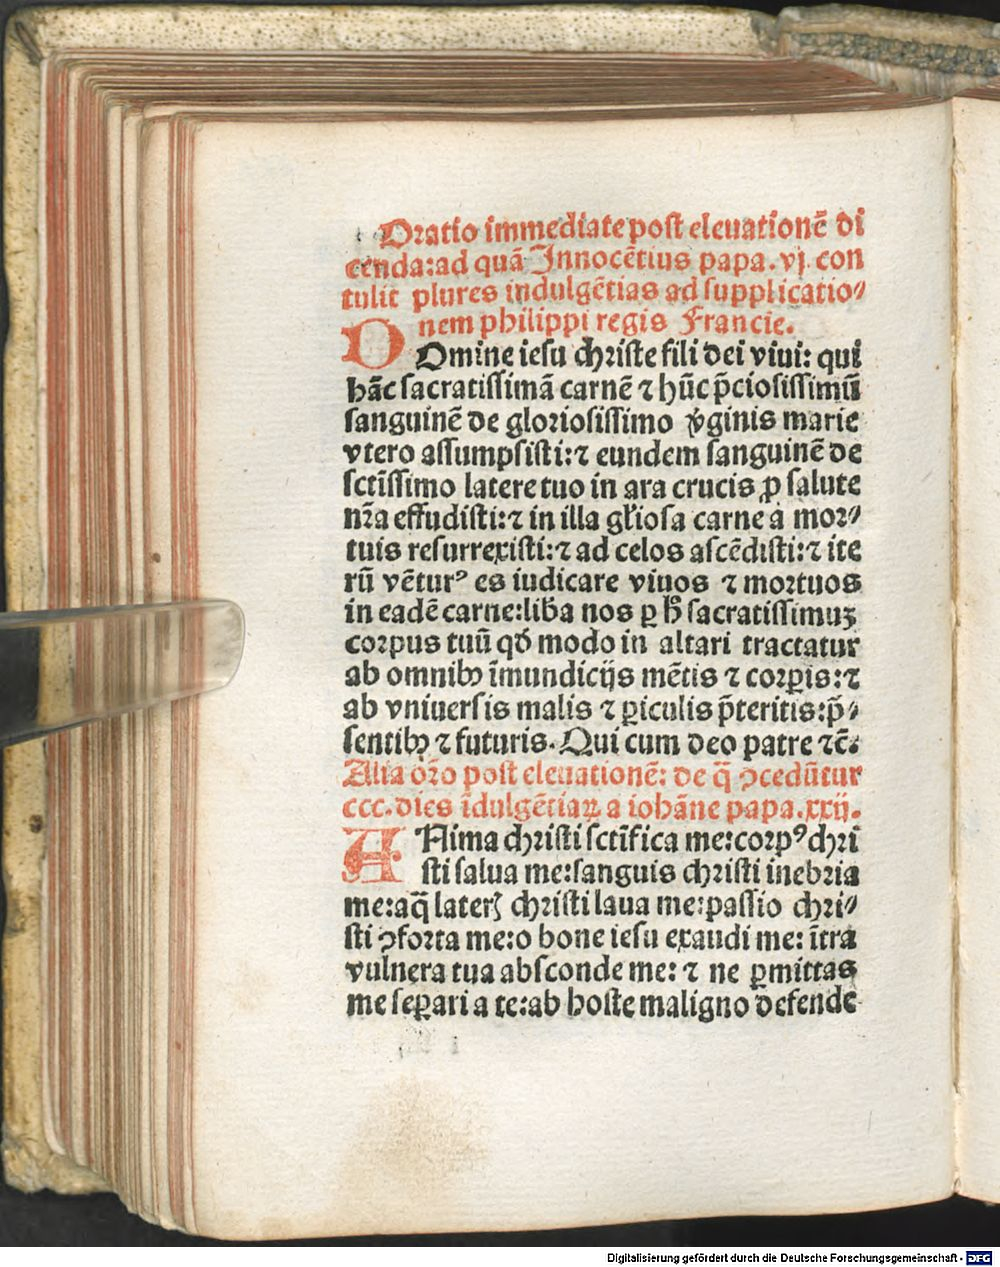 Oratio immediate post eleuationē di
cenda:ad quā Innocētius papa.vj.con
tulit plures indulgētias ad supplicatio⸗
nem philippi regis Francie.
DOmine iesu christe fili dei viui: qui
hāc sacratissimā carnē ⁊ hūc p̄ciosissimū
sanguinē de gloriosissimo v̄ginis marie
vtero assumpsisti:⁊ eundem sanguinē de
sctīssimo latere tuo in ara crucis ꝓ salute
nr̄a effudisti:⁊ in illa gl̄iosa carne a mor⸗
tuis resurrexisti:⁊ ad celos ascēdisti:⁊ ite
rū vētur⁹ es iudicare viuos ⁊ mortuos
in eadē carne:lib̄a nos ꝑ h̄ sacratissimuꝫ
corpus tuū qd̄ modo in altari tractatur
ab omnibꝰ īmundicijs mētis ⁊ corꝑis:⁊
ab vniuersis malis ⁊ ꝑiculis p̄teritis:p̄⸗
sentibꝰ ⁊ futuris. Qui cum deo patre ⁊c̄.
Alia ōro post eleuationē: de q̄ ꝯcedūtur
ccc. dies īdulgētiaꝝ a iohāne papa.xxij.
ANima christi sctīfica me:corp⁹ chri
sti salua me:sanguis christi inebria
me:aq̄ laterꝭ christi laua me:passio chri⸗
sti ꝯforta me:o bone iesu exaudi me: ītra
vulnera tua absconde me: ⁊ ne ꝑmittas
me seꝑari a te:ab hoste maligno defende
Digitalisierung gefördert durch die Deutsche Forschungsgemeinschaft - DFG